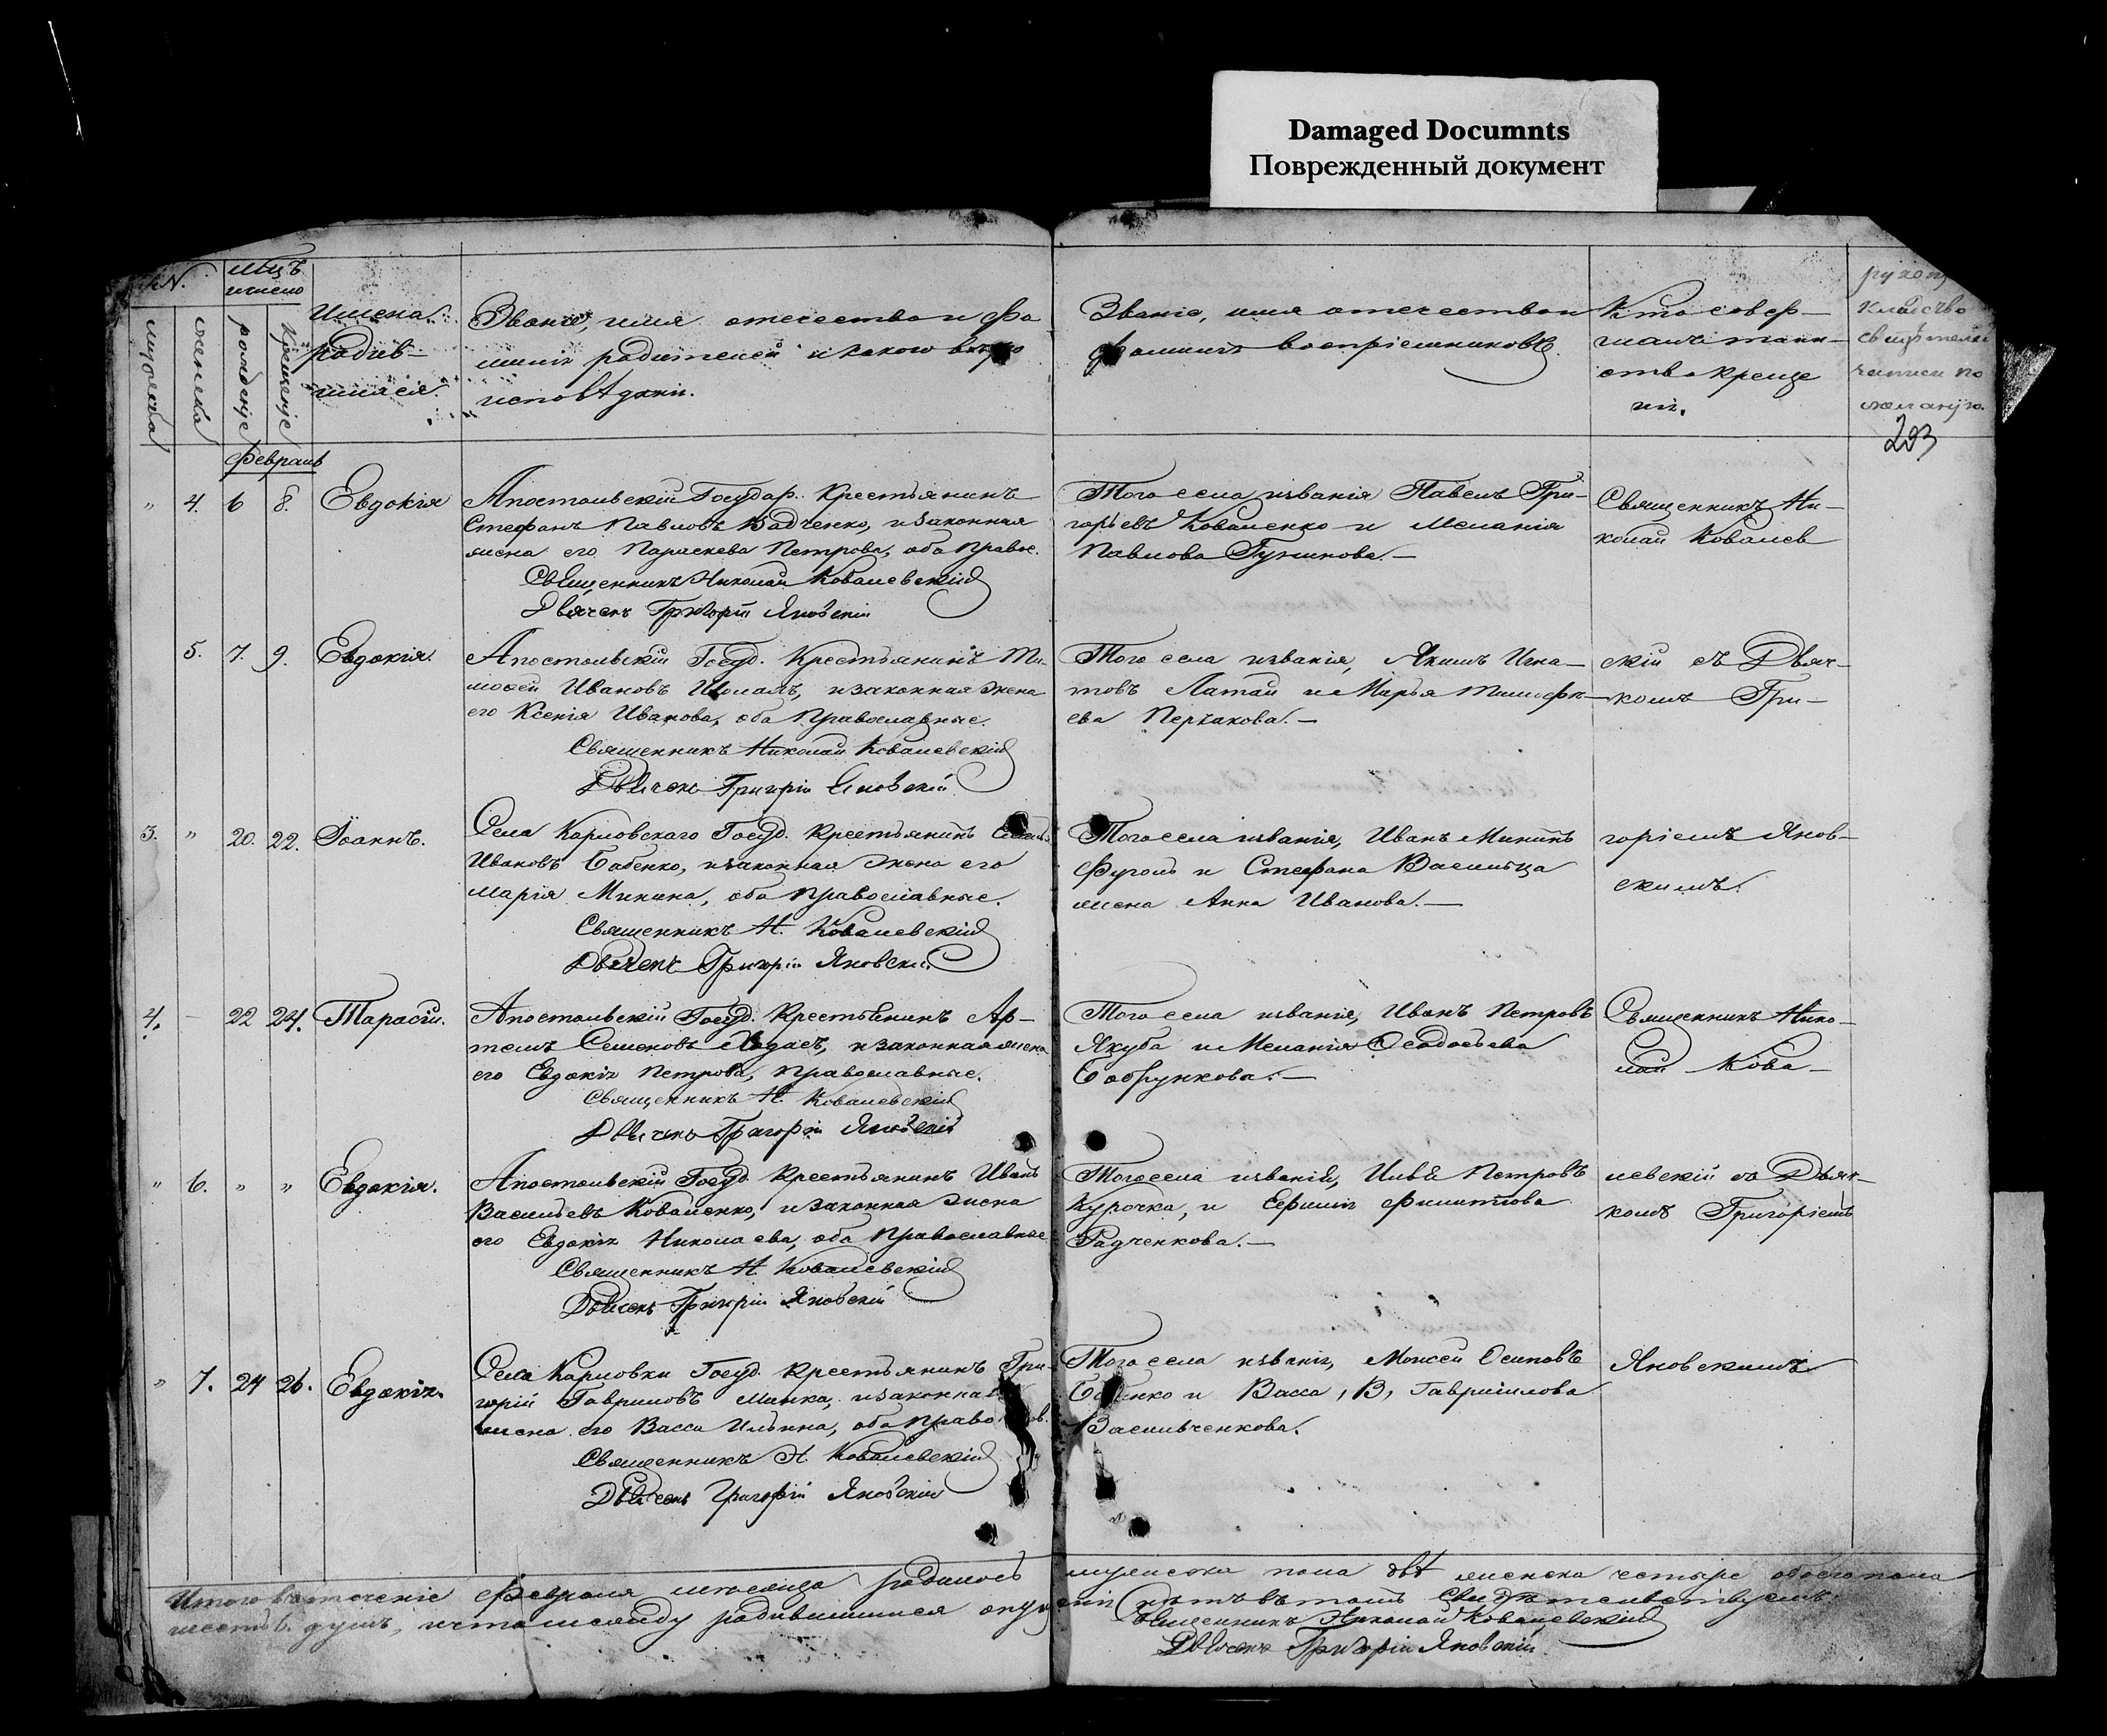 Damaged Documnts
Поврежденный документ
№.
мцъ
и число
мужеска
женска
рожденіе
крещеніе
Имена
родив-
шихся.
Званіе, имя отечество и фа
милія родителей и какого
исповѣданія.
Званіе, имя отечество и
фамилія воспріемниковъ.
Кто совер-
шалъ таин-
ство креще
нія.
203
Февраль
" 4. 6 8. Евдокія
Апостольскій Государ. Крестьянинъ
Стефанъ Павловъ Радченко, и законная
жена его Параскева Петрова, оба Правос.
Священникъ Николай Ковалевскій
Дьячекъ Григорій Яновскій
Того села и званія Павелъ Гри-
горьевъ Коваленко и Меланія
Павлова
Священникъ Ни-
колай Ковалев
5. 7. 9. Евдокія.
Апостольскій Госуд. Крестьянинъ Ти-
мофей Ивановъ и законная жена
его Ксенія Иванова, оба Православные.
Священникъ Николай Ковалевскій
Дьячекъ Григорій Яновскій
Того села и званія, Якимъ Игна-
товъ Латай и Марья Тимофѣ-
ева
скій съ Дьяч-
комъ Гри-
3. " 20. 22. Іоаннъ.
Села Карловскаго Госуд. Крестьянинъ
Ивановъ Бабенко, и законная жена его
Марія Минина, оба Православные.
Священникъ Н. Ковалевскій
Дьячекъ Григорій Яновскій
Того села и званія, Иванъ Мининъ
и Стефана
жена Анна Иванова.-
горіемъ Янов-
скимъ.
4. - 22 24. Тарасій.
Апостольскій Госуд. Крестьянинъ Ар-
темъ Семеновъ и законная жена
его Евдокія Петрова, Православные.
Священникъ Н. Ковалевскій
Дьячекъ Григорій Яновскій
Того села и званія, Иванъ Петровъ
Якуба и Меланія
Священникъ Нико-
лай Кова-
" 6. " " Евдокія.
Апостольскій Госуд. Крестьянинъ Иванъ
Васильевъ Коваленко, и законная жена
его Евдокія Николаева, оба Православные
Священникъ Н. Ковалевскій
Дьячекъ Григорій Яновскій
Того села и званія, Илья Петровъ
Курочка, и Ефимія Филиппова
Радченкова.-
левскій съ Дьяч-
комъ Григоріемъ
" 7. 24 26. Евдокія.
Села Карловки Госуд. Крестьянинъ Гри-
горій Гавриловъ Минка, и законная
жена его Васса Ильина, оба Правос
Священникъ Н. Ковалевскій
Дьячекъ Григорій Яновскій
Того села и званія, Моисей Осиповъ
Бабенко и Васса, В, Гавриилова
Васильченкова.
Яновскимъ
Итого въ теченіе Февраля мѣсяца родилось мужеска пола двѣ женска четыре обоего пола
шесть 6. душъ, и что между родившимися нѣтъ въ томъ свидѣтельствуемъ:
Священникъ Николай Ковалевскій
Дьячекъ Григорій Яновскій